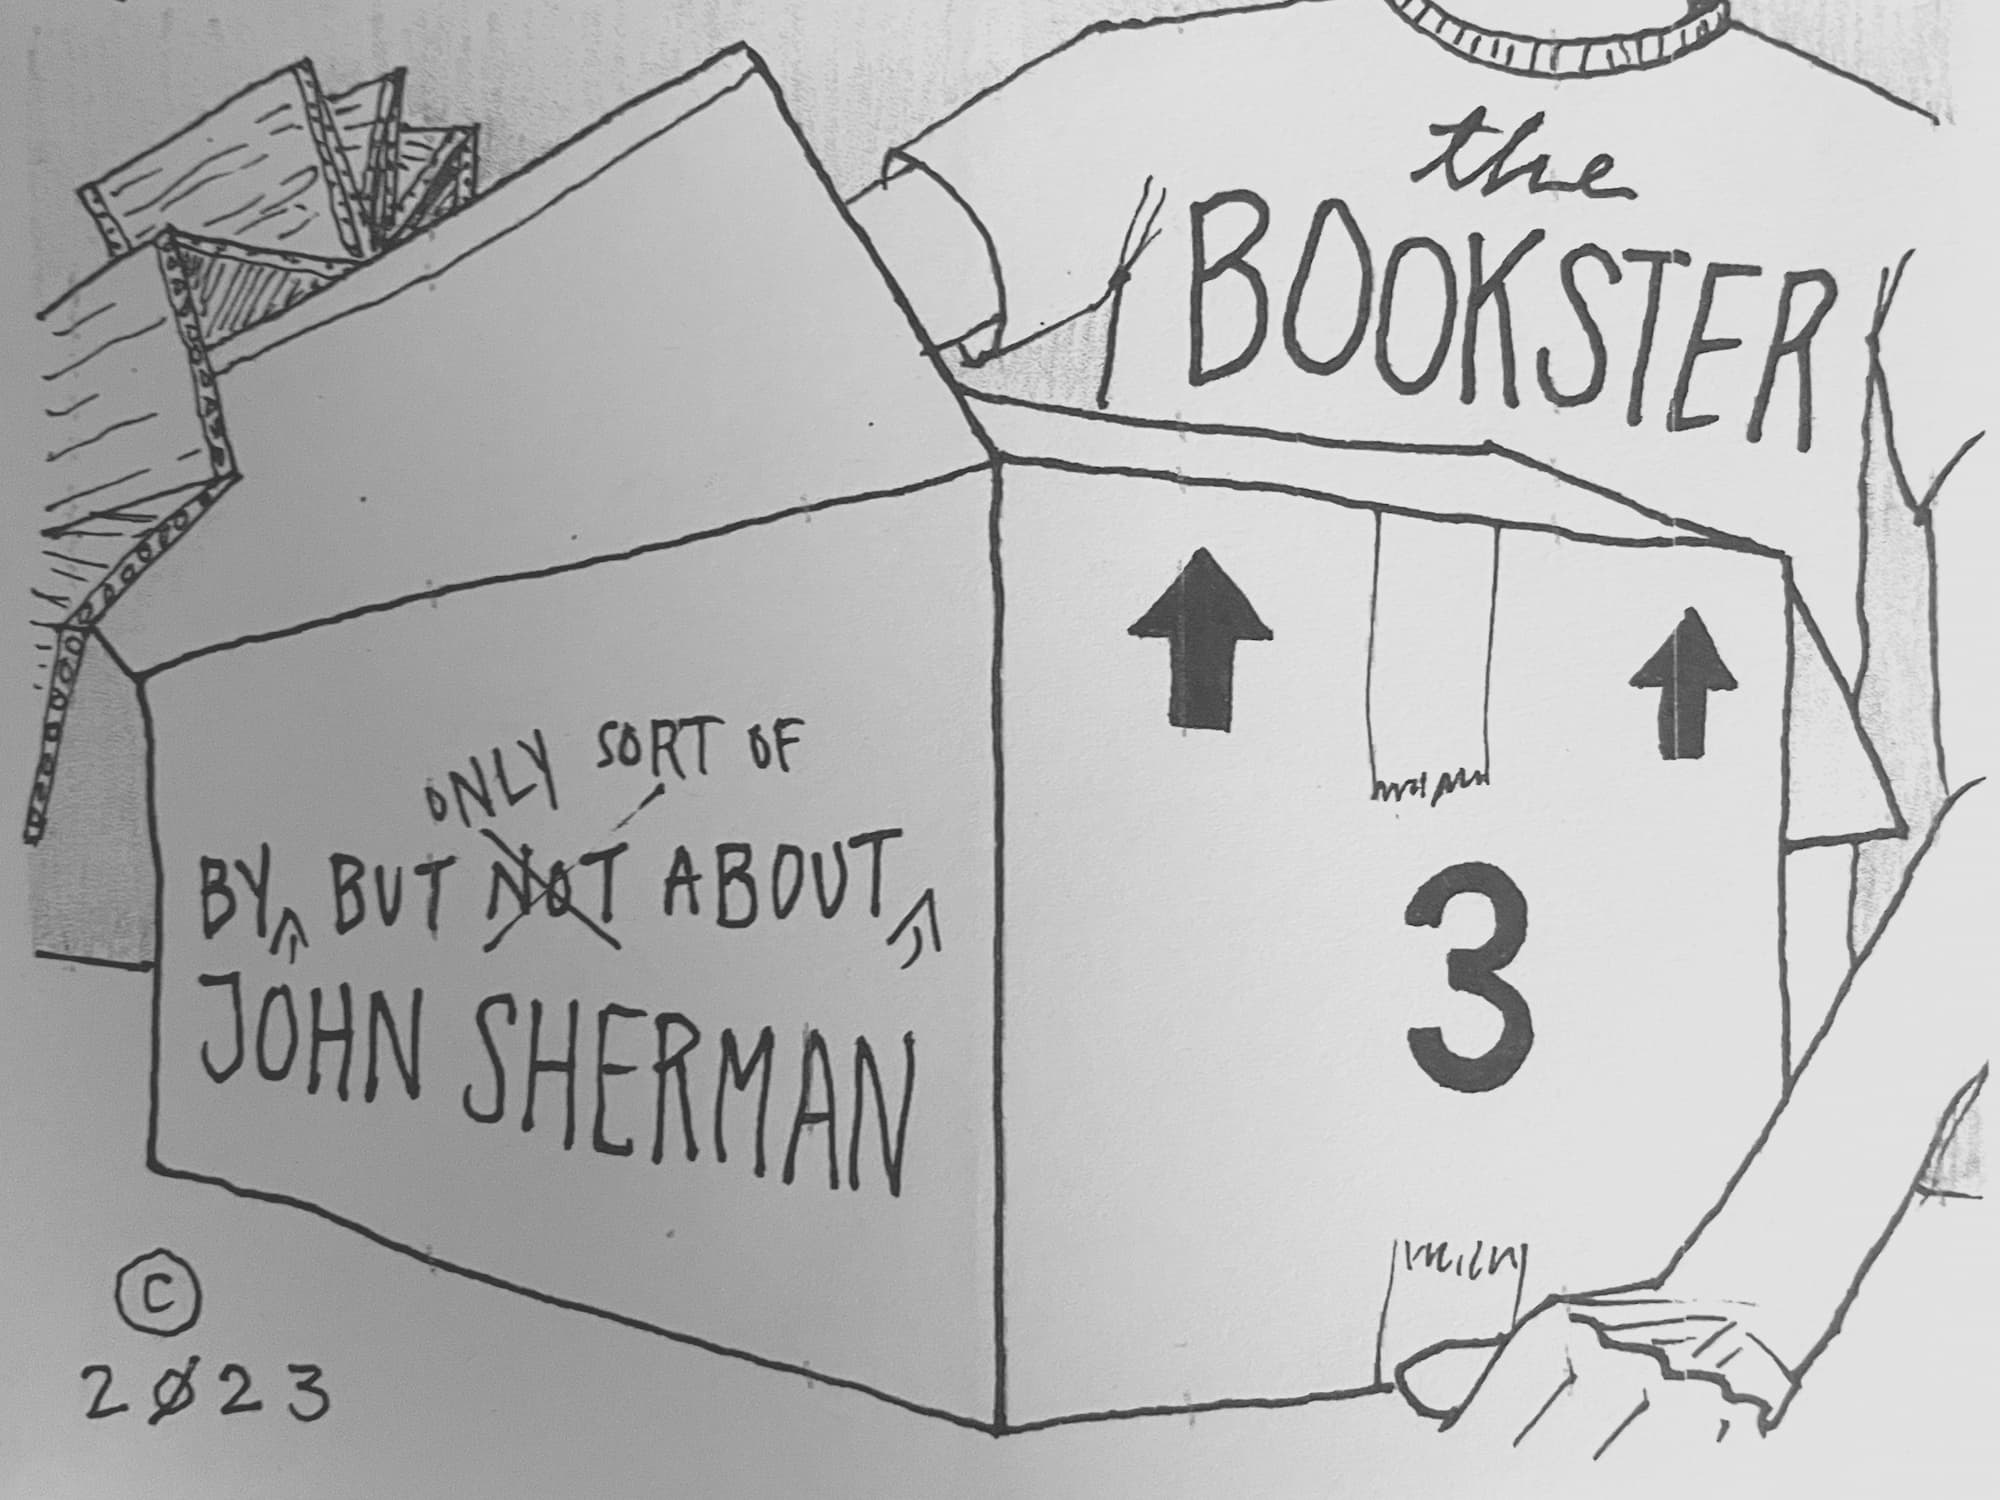 the
BOOKSTER
ONLY SORT OF
BY, BUT NOT ABOUT,
JOHN SHERMAN
3
© 
2023